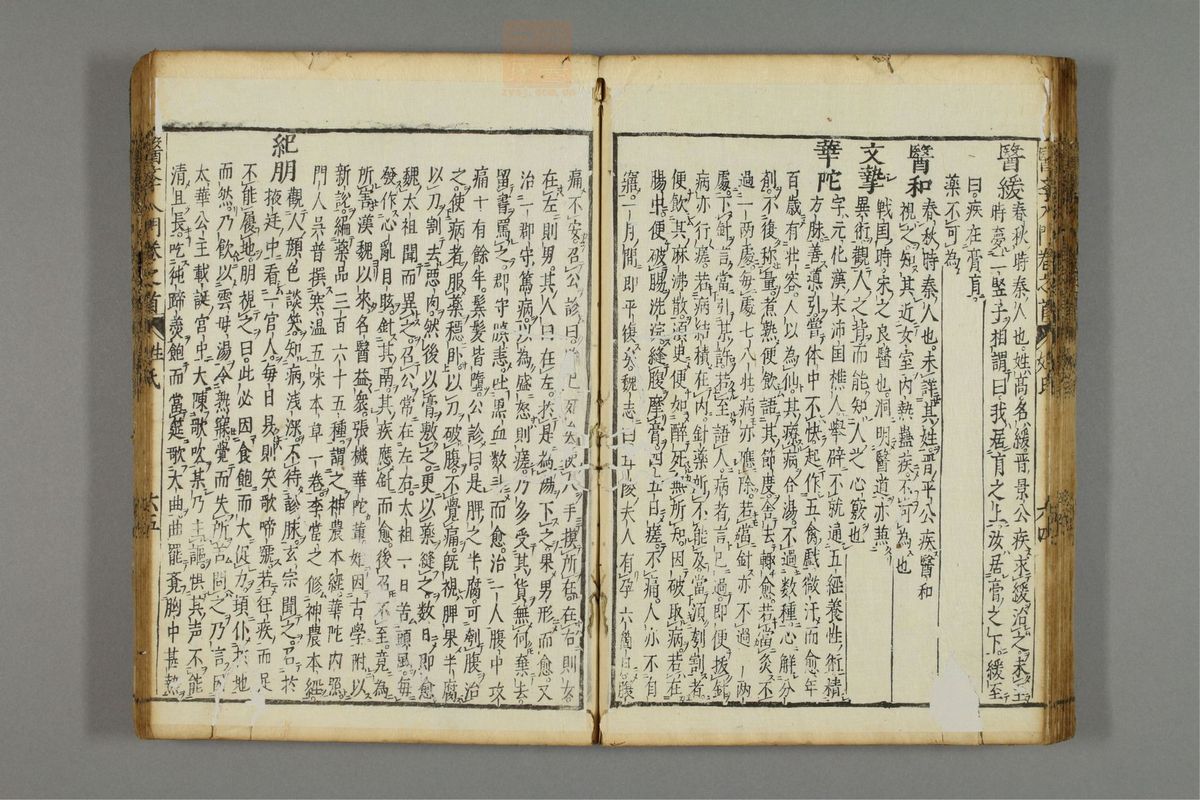 醫緩
春秋時秦人也姓高名緩晉景公疾求緩治之未至
時夢二豎子相謂曰我居肓之上汝居膏之下緩至
曰疾在膏肓
藥不可為
醫和
春秋時秦人也未詳其姓晋平公疾醫和
視之知其近女室内熱蠱疾不可為也
文摯
戦国時宋之良醫也洞明醫道亦兼
異術觀人之背而能知人之心竅也
華陀
字元化漢末沛国樵人舉辟不就通五經養性術精
方脉善導引嘗体中不快起作五禽戲微汗而愈年
百歳有壮容人以為仙其療病合湯不過数種心解分
劑不後称量煮熟便飲語其節度舎去輙愈若當灸不
過一両處毎處七八壮病亦應除若當針亦不過一両
處下針言當引某許若至語人病者言已過即便拔針
病亦行瘥若病結積在内針薬所不能及當須刳割者
便飲其麻沸散須臾便如醉死無所知因破取病若在
腸中便破腸洗浣縫腹摩膏四五日瘥不痛人亦不自
寤一月間即平復矣魏志曰
陵夫人有孕六箇月腹
痛不安召公診曰
人手摸所在在右則女
在左則男其人曰在左
湯下之果男形而愈又
治一郡守篤病以為盛怒則瘥乃多受其貨無何棄去
留書罵之郡守瞋恚吐黒血数斗而愈治一人腹中攻
痛十有餘年鬂髪皆墮公診曰是脾之半腐可刳腹治
之使病者服薬穏臥以刀破腹不覺痛既視脾果半腐
以刀割去悪肉然後以膏敷之更以薬縫之数日即愈
魏太祖聞而異之召公常在左右太祖一日苦頭風毎
發作心亂目眩針其鬲其疾應針而愈後召不至竟為
所害漢魏以來名醫益衆張機華陀輩始因古學附以
新説編薬品三百六十五種謂之神農本經華陀内照
門人呉普撰寒温五味本草一巻李當之修神農本經
紀朋
觀人顔色談笑知病浅深不待診脉玄宗聞之召於
掖廷中看一宮人毎日昃則笑歌啼號若狂疾而足
不能履地朋視之曰此必因食飽而大促力頓仆於地
而然乃飲以雲母湯令熟寢覺而失所苦問之乃言因
太華公主載誕宮中大陳歌吹某乃主謳懼其声不能
清且長吃㹠蹄羮飽而當筵歌大曲曲罷覚胸中甚熱
醫學入門巻之首
姓氏
六四
六五